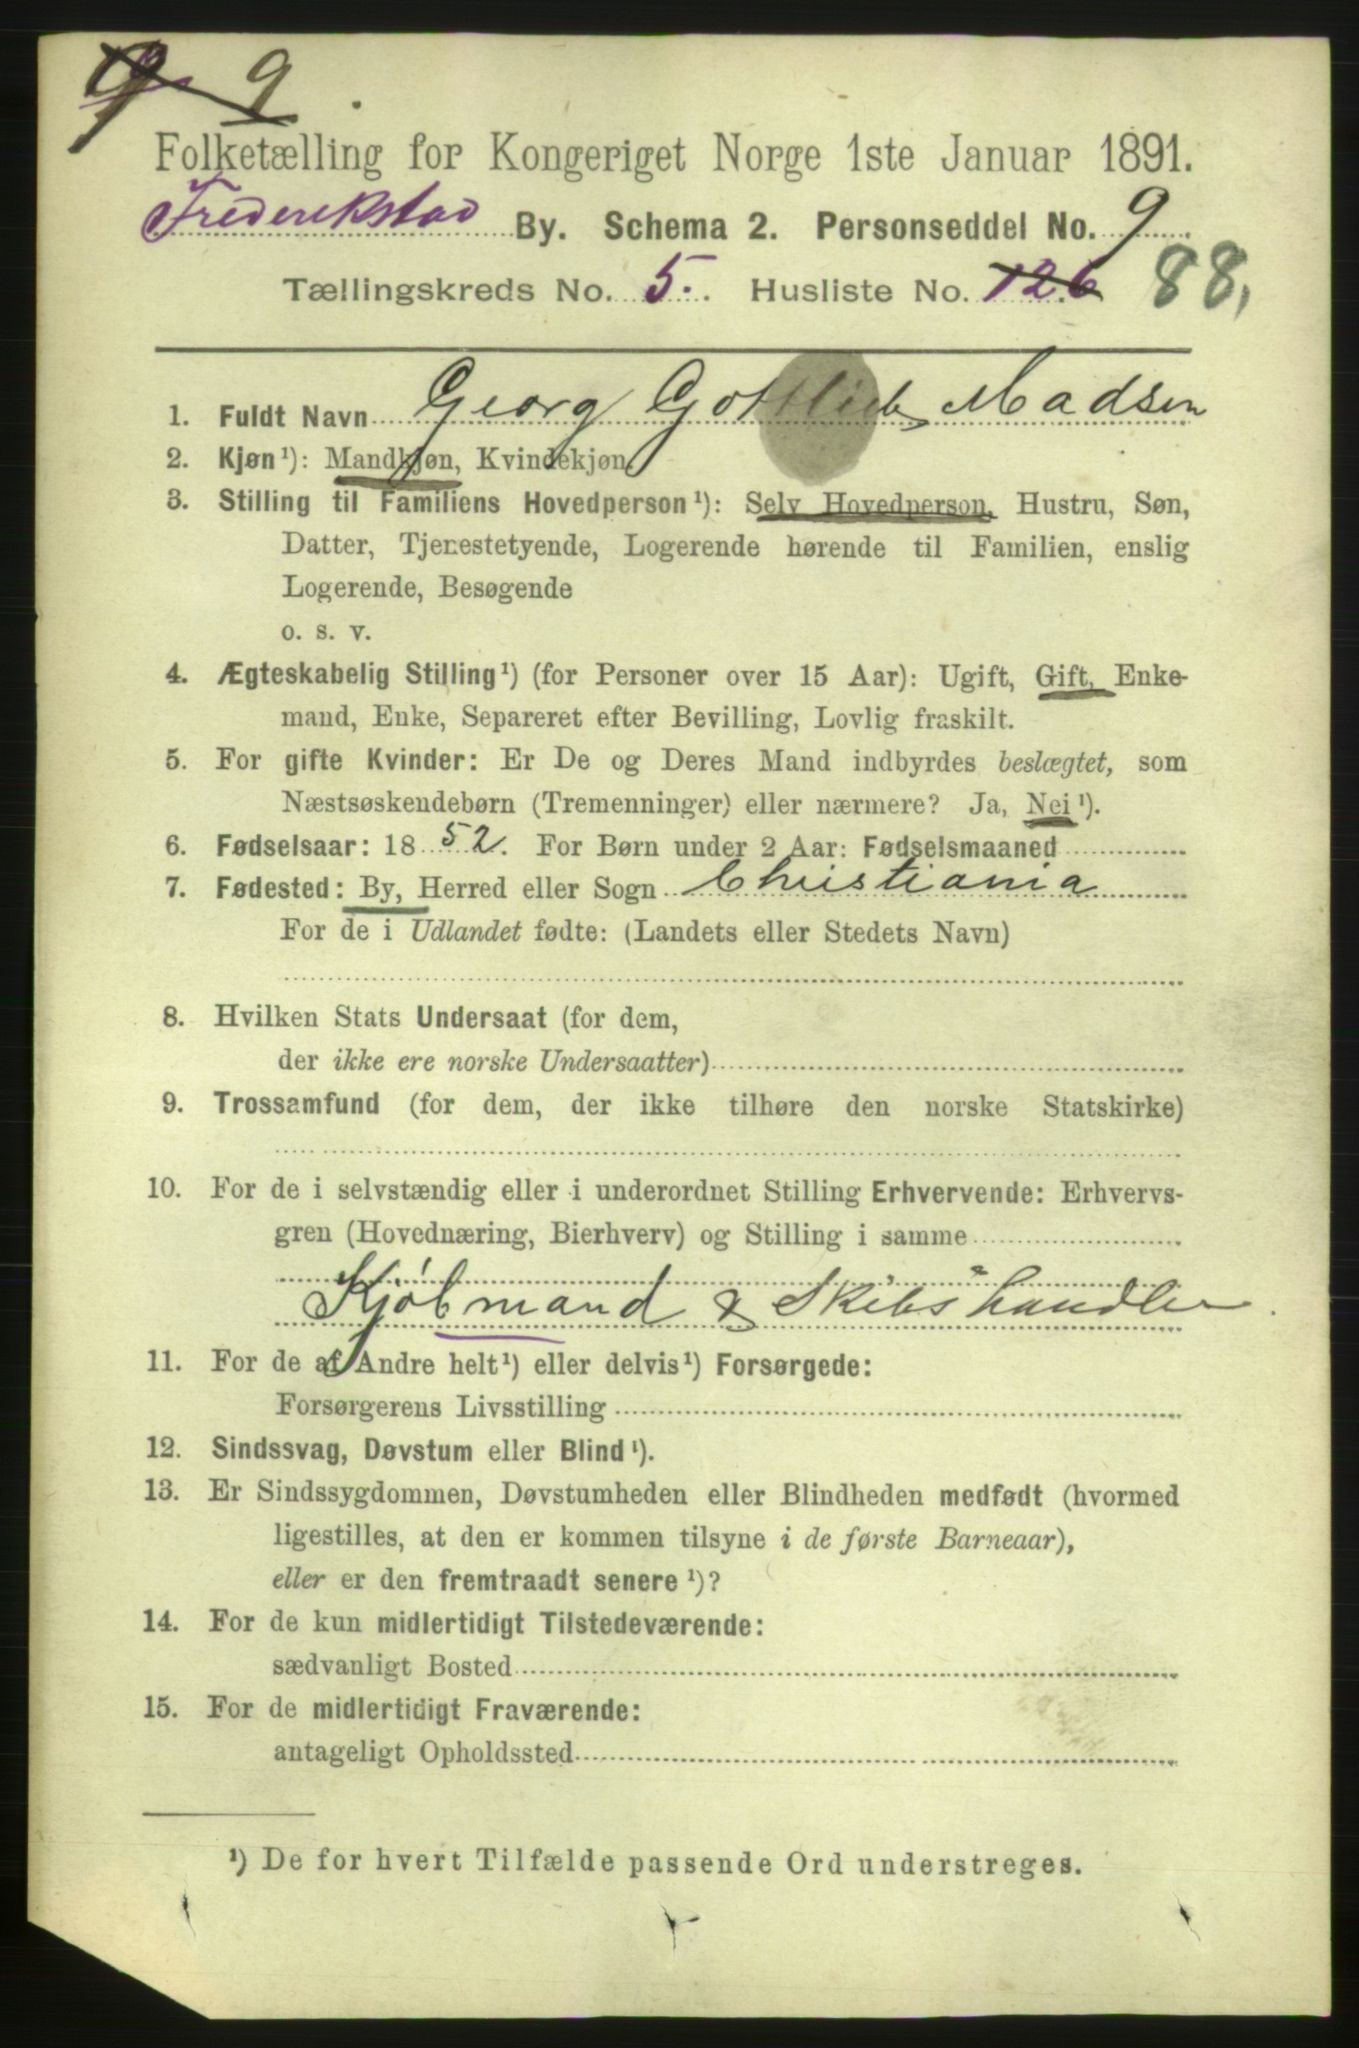 9 9
Folketælling for Kongeriget Norge 1ste Januar 1891.
Frederekstad By. Schema 2. Personseddel No. 9
Tællingskreds No. 5. Husliste No. 126 88,
1. Fuldt Navn Georg Gottlieb Madsen
2. Kjøn¹): Mandkjøn, Kvindekjøn
3. Stilling til Familiens Hovedperson¹): Selv Hovedperson, Hustru, Søn,
Datter, Tjenestetyende, Logerende hørende til Familien, enslig
Logerende, Besøgende
o. s. v.
4. Ægteskabelig Stilling¹) (for Personer over 15 Aar): Ugift, Gift, Enke-
mand, Enke, Separeret efter Bevilling, Lovlig fraskilt.
5. For gifte Kvinder: Er De og Deres Mand indbyrdes beslægtet, som
Næstsøskendebørn (Tremenninger) eller nærmere? Ja, Nei¹).
6. Fødselsaar: 1852. For Børn under 2 Aar: Fødselsmaaned
7. Fødested: By, Herred eller Sogn Christiania
For de i Udlandet fødte: (Landets eller Stedets Navn)
8. Hvilken Stats Undersaat (for dem,
der ikke ere norske Undersaatter)
9. Trossamfund (for dem, der ikke tilhøre den norske Statskirke)
10. For de i selvstændig eller i underordnet Stilling Erhvervende: Erhvervs-
gren (Hovednæring, Bierhverv) og Stilling i samme
Kjøbmand & Skibshandler
11. For de af Andre helt¹) eller delvis¹) Forsørgede:
Forsørgerens Livsstilling
12. Sindssvag, Døvstum eller Blind¹).
13. Er Sindssygdommen, Døvstumheden eller Blindheden medfødt (hvormed
ligestilles, at den er kommen tilsyne i de første Barneaar),
eller er den fremtraadt senere¹)?
14. For de kun midlertidigt Tilstedeværende:
sædvanligt Bosted
15. For de midlertidigt Fraværende:
antageligt Opholdssted
¹) De for hvert Tilfælde passende Ord understreges.